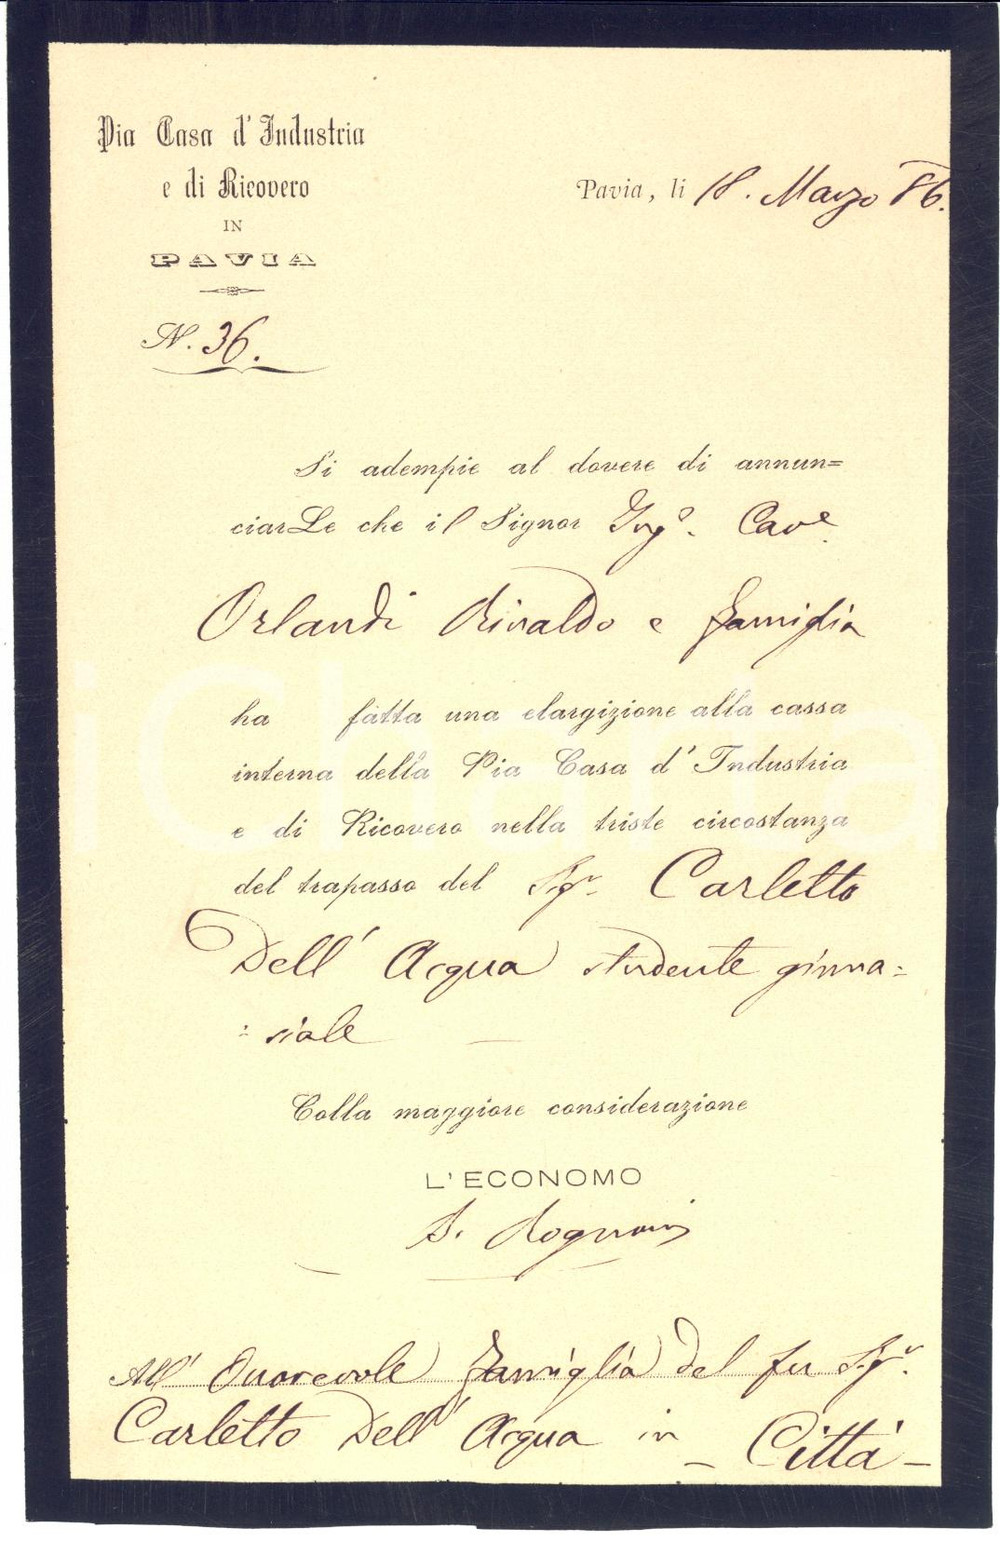 Pia Casa d'Industria
e di Ricovero
IN
PAVIA
N. 36.
Pavia, li 18. Marzo 86.
Si adempie al dovere di annun=
ciarLe che il Signor Ing.º Cav.e
Orlandi Rinaldo e famiglia
ha fatta una elargizione alla cassa
interna della Pia Casa d'Industria
e di Ricovero nella triste circostanza
del trapasso del Sigr. Carletto
Dell'Acqua studente ginna=
=siale
Colla maggiore considerazione
L'ECONOMO
All'Onorevole Famiglia del fu Sigr.
Carletto Dell'Acqua in – Città –